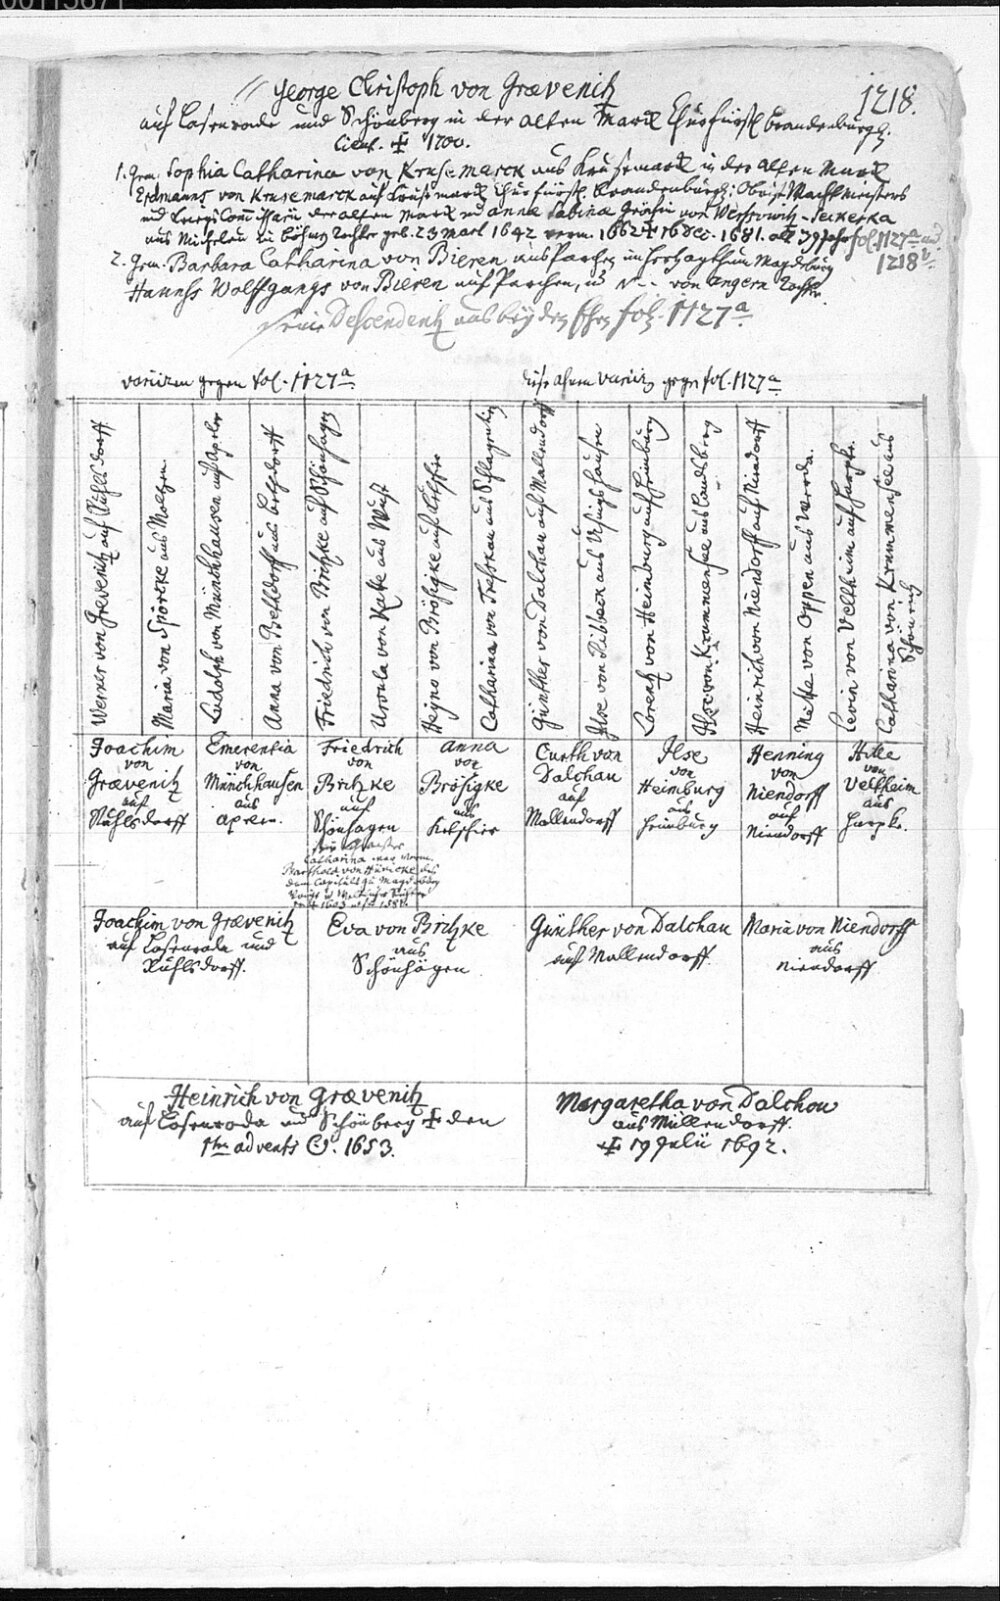 00115671
1218.
George Christoph von Grævenitz
auf Losenrade und Schönberg in der alten Marck Churfürstl. Brandenburg.
Lieut. ✝ 1700.
1. Gem. Sophia Catharina von Krusemarck aus Krusemarck in der alten Marck
Erdmanns von Krusemarck auf Krusemarck Churfürstl. Brandenburg: Obrist Wachtmeisters
und Kriegs Commissarii der alten Marck und Anna Sabina Gräfin von Werschowitz-Sekerka
aus in Böhmen Tochter geb. 23 Mart 1642 verm. 1662 ✝ 16 Dec. 1681. alt 39 Jahr fol. 1127ᵃ und
1218ᵇ
2. Gem. Barbara Catharina von Bieren aus Parchen im Herzogthum Magdeburg
Hannss Wolffgangs von Bieren auf Parchen, u N-- von Angern Tochter.
seine Descendentz aus beyden Ehen fol. 1127ᵃ
variiren gegen fol. 1127ᵃ
diese Ahnen variiren gegen fol. 1127ᵃ
Werner von Grevenitz auf Rühlsdorff
Maria von Spörcke aus Moltzen.
Ludolph von Münchhausen auf Aprlen
Anna von Bessdorff aus
Friedrich von Britzke auf Schönhagen
Ursula von Katte aus Wust
Heyno von Brösigke auf Ketschir
Catharina von Treskau aus Schlagentin
Günther von Dalchau auf Mallendorff
Ilse von Ribbeck aus
Lorentz von Heimburg auf Heimburg
Ilse von Krummensee aus Landsberg
Heinrich von Niendorff auf Niendorff
Mette von Oppen aus
Levin von Veltheim auf Harpke.
Catharina von Krummensee aus
Joachim
von
Grævenitz
auf
Rühlsdorff
Emerentia
von
Münchhausen
aus
Aprlen.
Friedrich
von
Britzke
auf
Schönhagen
seine Schwester
Catharina war verm.
Barthold von Hünicke des
dem Capituls zu Magdeburg
Anna
von
Brösigke
aus
Ketschir
Curth von
Dalchau
auf
Mallendorff
Ilse
von
Heimburg
aus
Heimburg
Henning
von
Niendorff
auf
Niendorff
Hille
von
Veltheim
aus
Harpke.
Joachim von Grævenitz
auf Losenrade und
Rühlsdorff.
Eva von Britzke
aus
Schönhagen
Günther von Dalchau
auf Mallendorff.
Maria von Niendorff
aus
Niendorff
Heinrich von Grævenitz
auf Losenrade und Schönberg ✝ den
1ten Advents ☉. 1653.
Margaretha von Dalchow
aus Müllendorff.
✝ 19 Julii 1692.